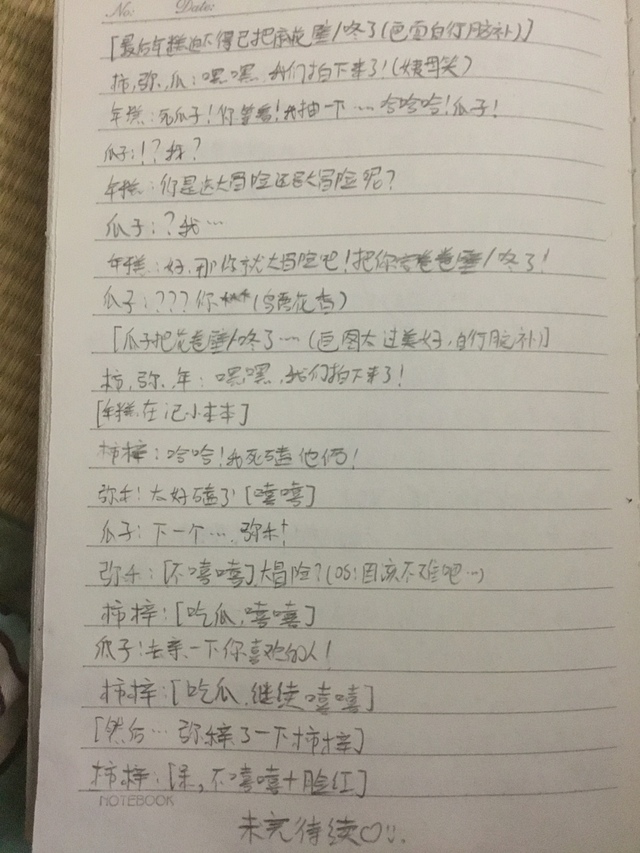 No: Date:
[最后年糕迫不得已把麻花壁/咚了(画面自行脑补)]
柿,弥,瓜:嘿嘿,我们拍下来了!(姨母笑)
年糕:死瓜子!你等着!我抽一下…哈哈哈!瓜子!
瓜子:!?我?
年糕:你是选大冒险还是大冒险呢?
瓜子:?我…
年糕:好,那你就大冒险吧!把你家卷卷壁/咚了!
瓜子:???你***(鸟语花香)
[瓜子把花卷壁/咚了…(画面太过美好,自行脑补)]
柿,弥,年:嘿嘿,我们拍下来了!
[年糕在记小本本]
柿梓:哈哈!我死磕他俩!
弥禾:太好磕了[嘻嘻]
瓜子:下一个…弥禾!
弥禾:[不嘻嘻]大冒险?(OS:因该不难吧…)
柿梓:[吃瓜,嘻嘻]
瓜子:去亲一下你喜欢的人!
柿梓:[吃瓜,继续嘻嘻]
[然后…弥禾亲了一下柿梓]
柿梓:[呆,不嘻嘻+脸红]
NOTEBOOK
未完待续♡